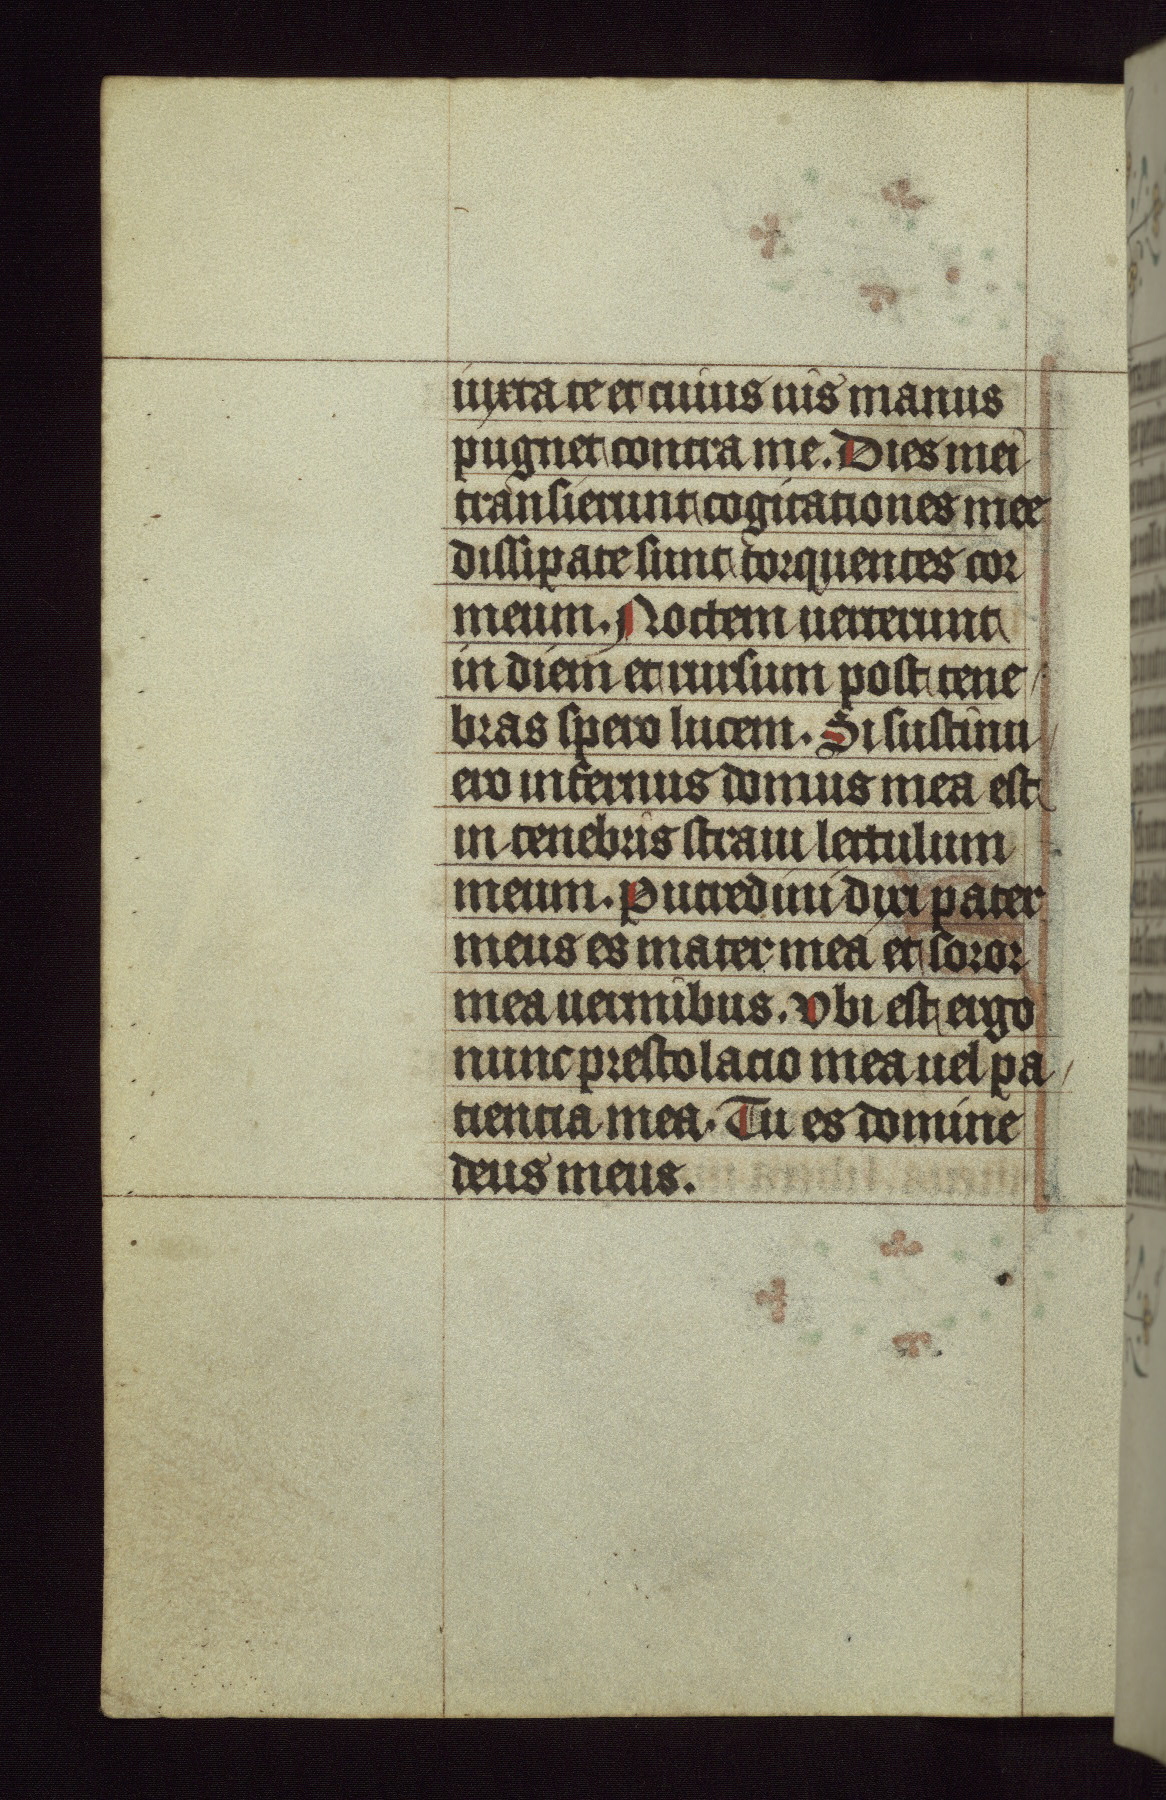 iuxta te et cuius uis manus
pugnet contra me. Dies mei
transierunt cogitationes mee
dissipate sunt torquentes cor
meum. Noctem uerterunt
in diem et rursum post tene
bras spero lucem. Si sustinu
ero infernus domus mea est
in tenebris straui lectulum
meum. Putredini dixi pater
meus es mater mea et soror
mea uermibus. Vbi est ergo
nunc prestolacio mea uel pa
tientia mea. Tu es domine
deus meus.